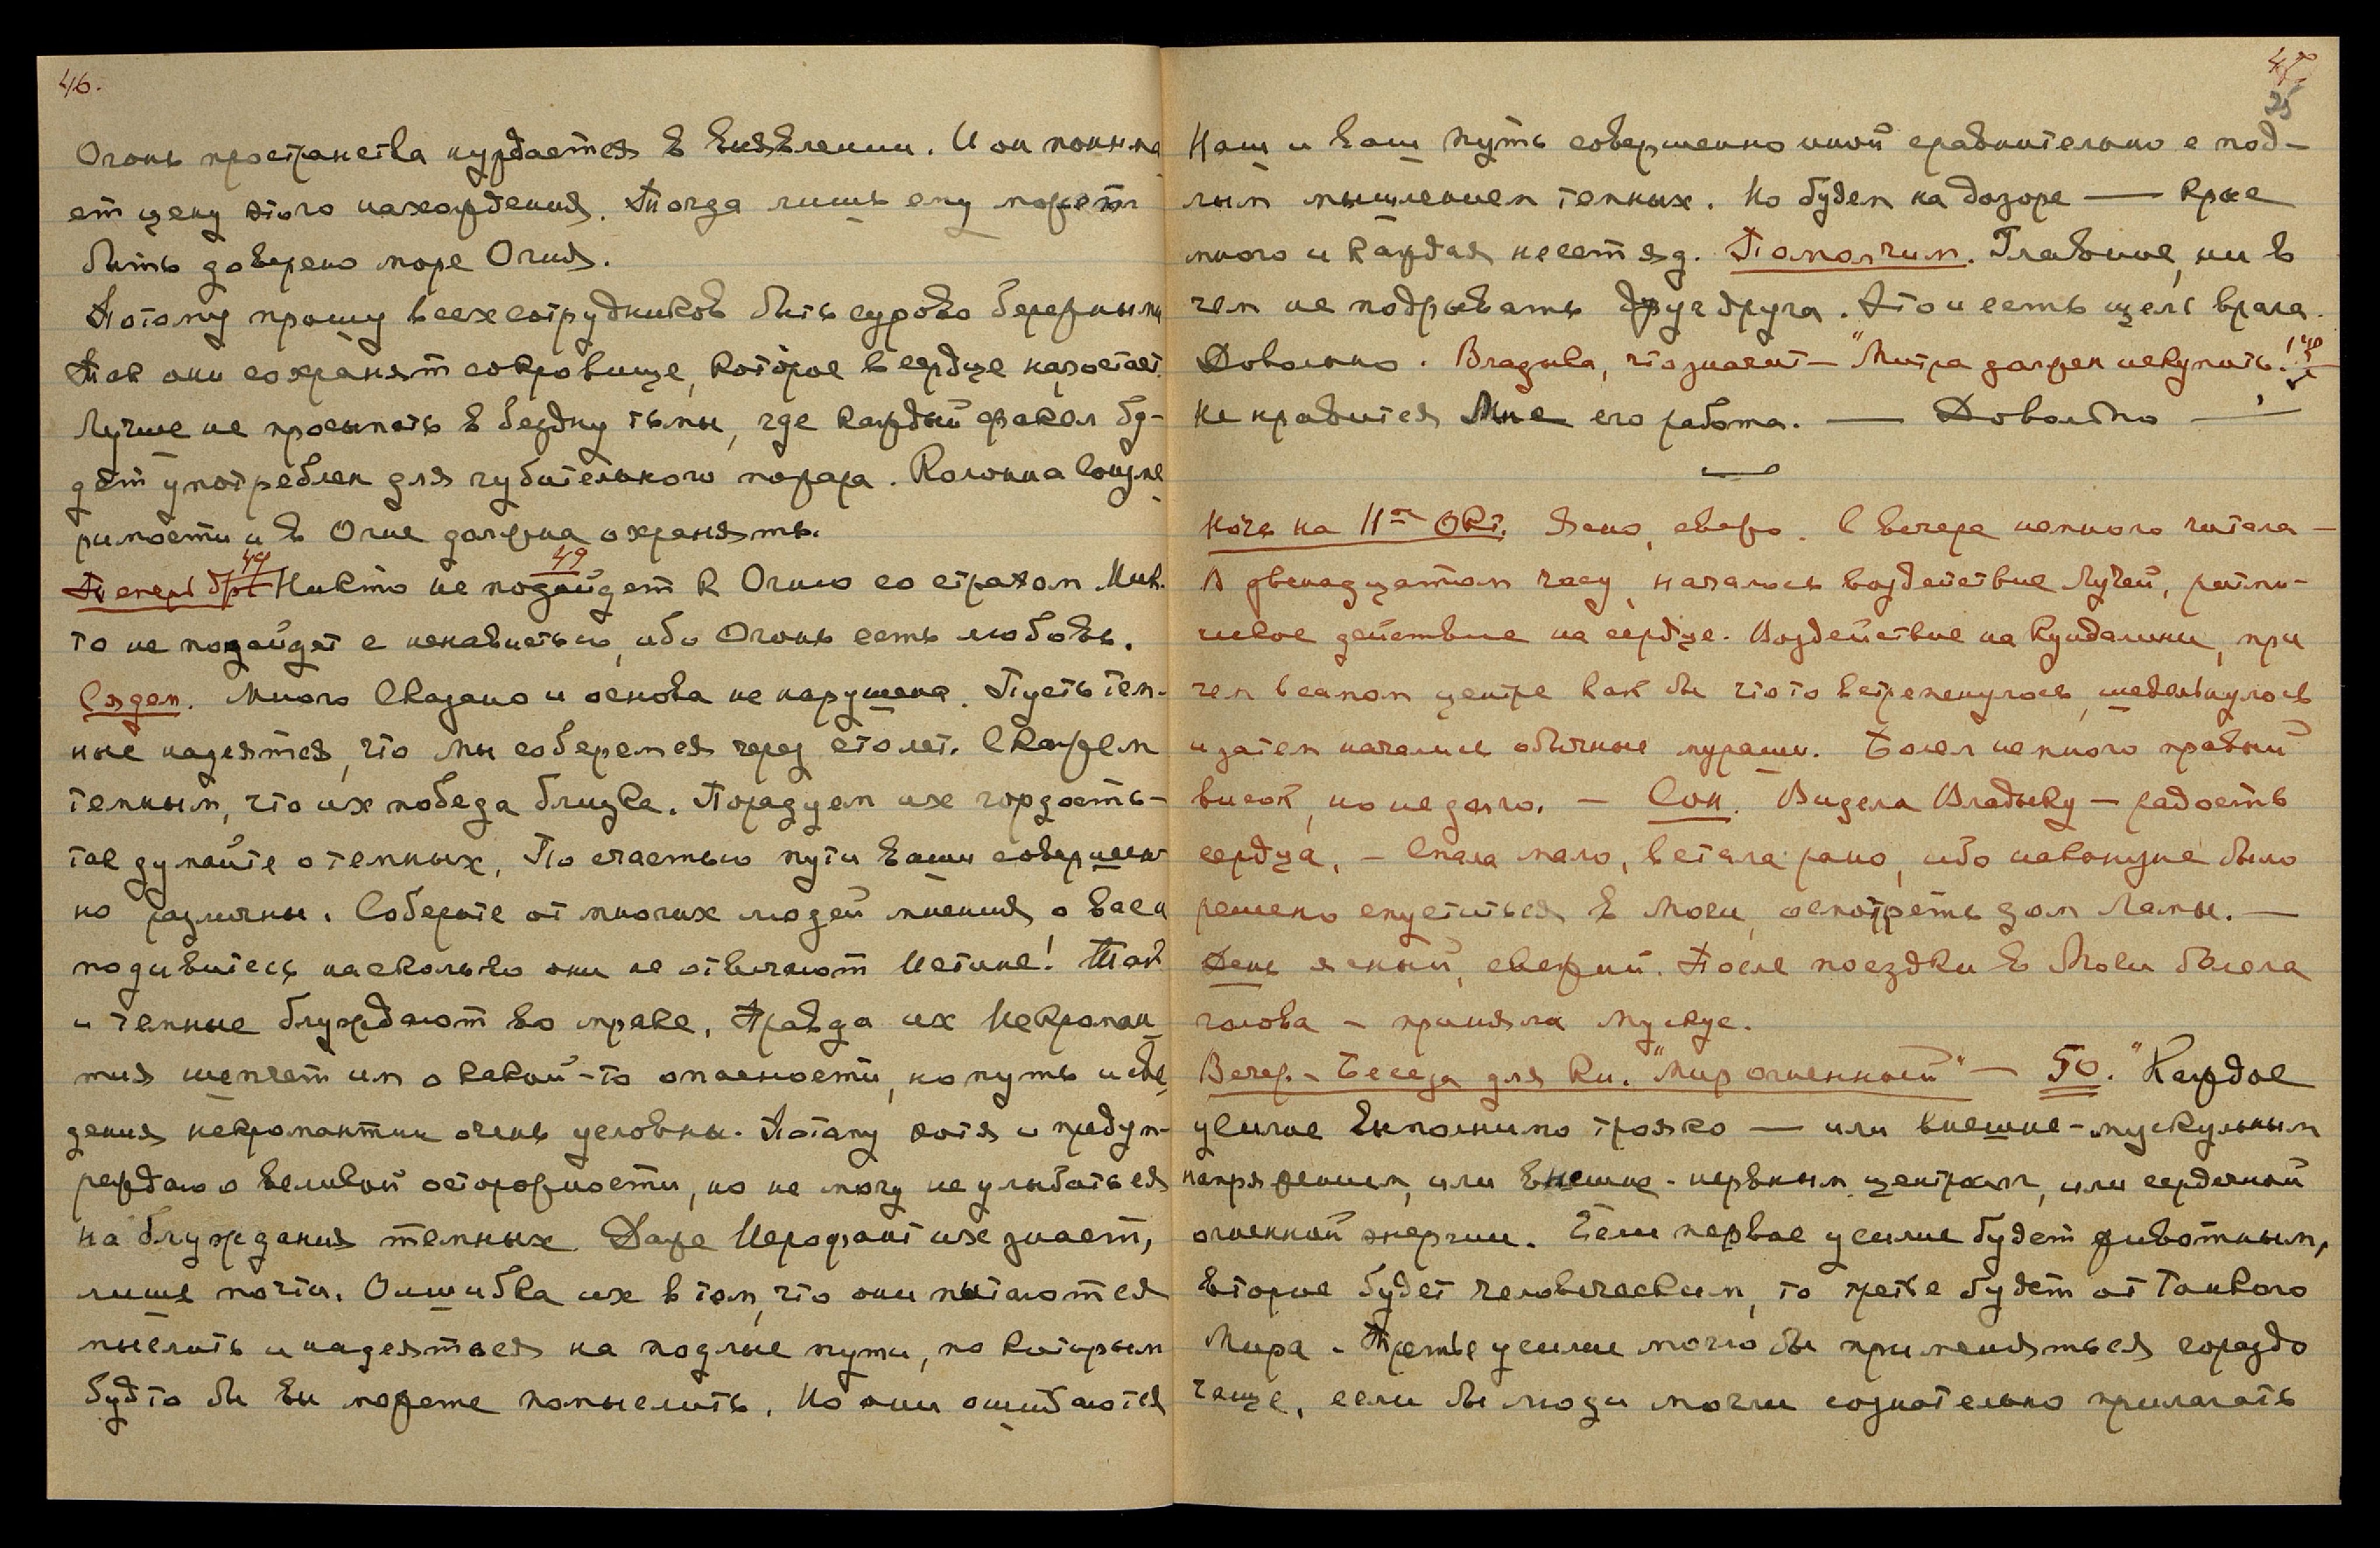 46.
Огонь пространства нуждается в выявлении. И он понима
ет цену этого нахождения. Тогда лишь ему может
быть доверено море Огня.
Потому прошу всех сотрудников быть сурово бережными
Так они сохранят сокровище, которое в сердце нарастает.
Лучше не просыпать в бездну тьмы, где каждый факел бу-
дет употреблен для губительного пожара. Колонна Соизме
римости и в Огне должна охранять.
49 49
Теперь др. Никто не подойдет к Огню со страхом. Ник-
то не подойдет с ненавистью, ибо Огонь есть любовь.
Сядем. Много Сказано и основа не нарушена. Пусть тем-
ные надеятся, что мы соберемся через сто лет. Скажем
темным, что их победа близка. Порадуем их гордость-
так думайте о темных. По счастью пути ваши совершен-
но различны. Соберите от многих людей мнения о вас и
подивитесь насколько они не отвечают Истине! Так
и темные блуждают во мраке. Правда их Некроман
тия шепчет им о какой-то опасности, но путь и све
дения некромантии очень условны. Потому хотя и предуп-
реждаю о великой осторожности, но не могу не улыбаться
на блуждания темных. Даже Иерофант их знает,
лишь почти. Ошибка их в том, что они пытаются
мыслить и надеяться на подлые пути, по которым
будто бы вы можете помыслить. Но они ошибаются
47
25
Наш и ваш путь совершенно иной сравнительно с под-
лым мышлением темных. Но будем на дозоре — крыс
много и каждая несет яд. Помолчим. Главное, ни в
чем не подрывать друг друга. Это и есть цель врага.
Довольно. Владыка, что значит — "Митра должен искупить!"
Не нравится Мне его работа. — Довольно —
Ночь на 11ое Окт. Ясно, свежо. С вечера немного читала —
В двенадцатом часу, началось воздействие Лучей, ритми-
чное действие на сердце. Воздействие на Кундалини, при
чем в самом центре как бы что то встрепенулось, шевельнулось
и затем начались обычные мураши. Болел немного правый
висок, но не долго. — Сон. Видела Владыку — радость
сердца. — Спала мало, встала рано, ибо накануне было
решено спуститься в Моси, осмотреть дом Ламы. —
День ясный, свежий. После поездки в Моси болела
голова — приняла мускус.
Вечер. — Беседа для Кн. "Мир огненный" — 50. "Каждое
усилие выполнимо трояко — или внешне-мускульным
напряжением, или внешне-нервным центром, или сердечной
огненной энергии. Если первое усилие будет животным,
второе будет человеческим, то третье будет от Тонкого
Мира. Третье усилие могло бы применяться гораздо
чаще, если бы люди могли сознательно прилагать